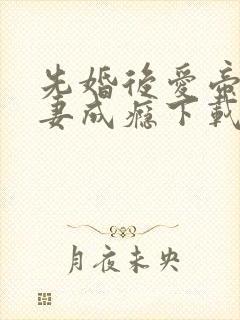 先婚後愛帝
妻成癮下載
月夜未央